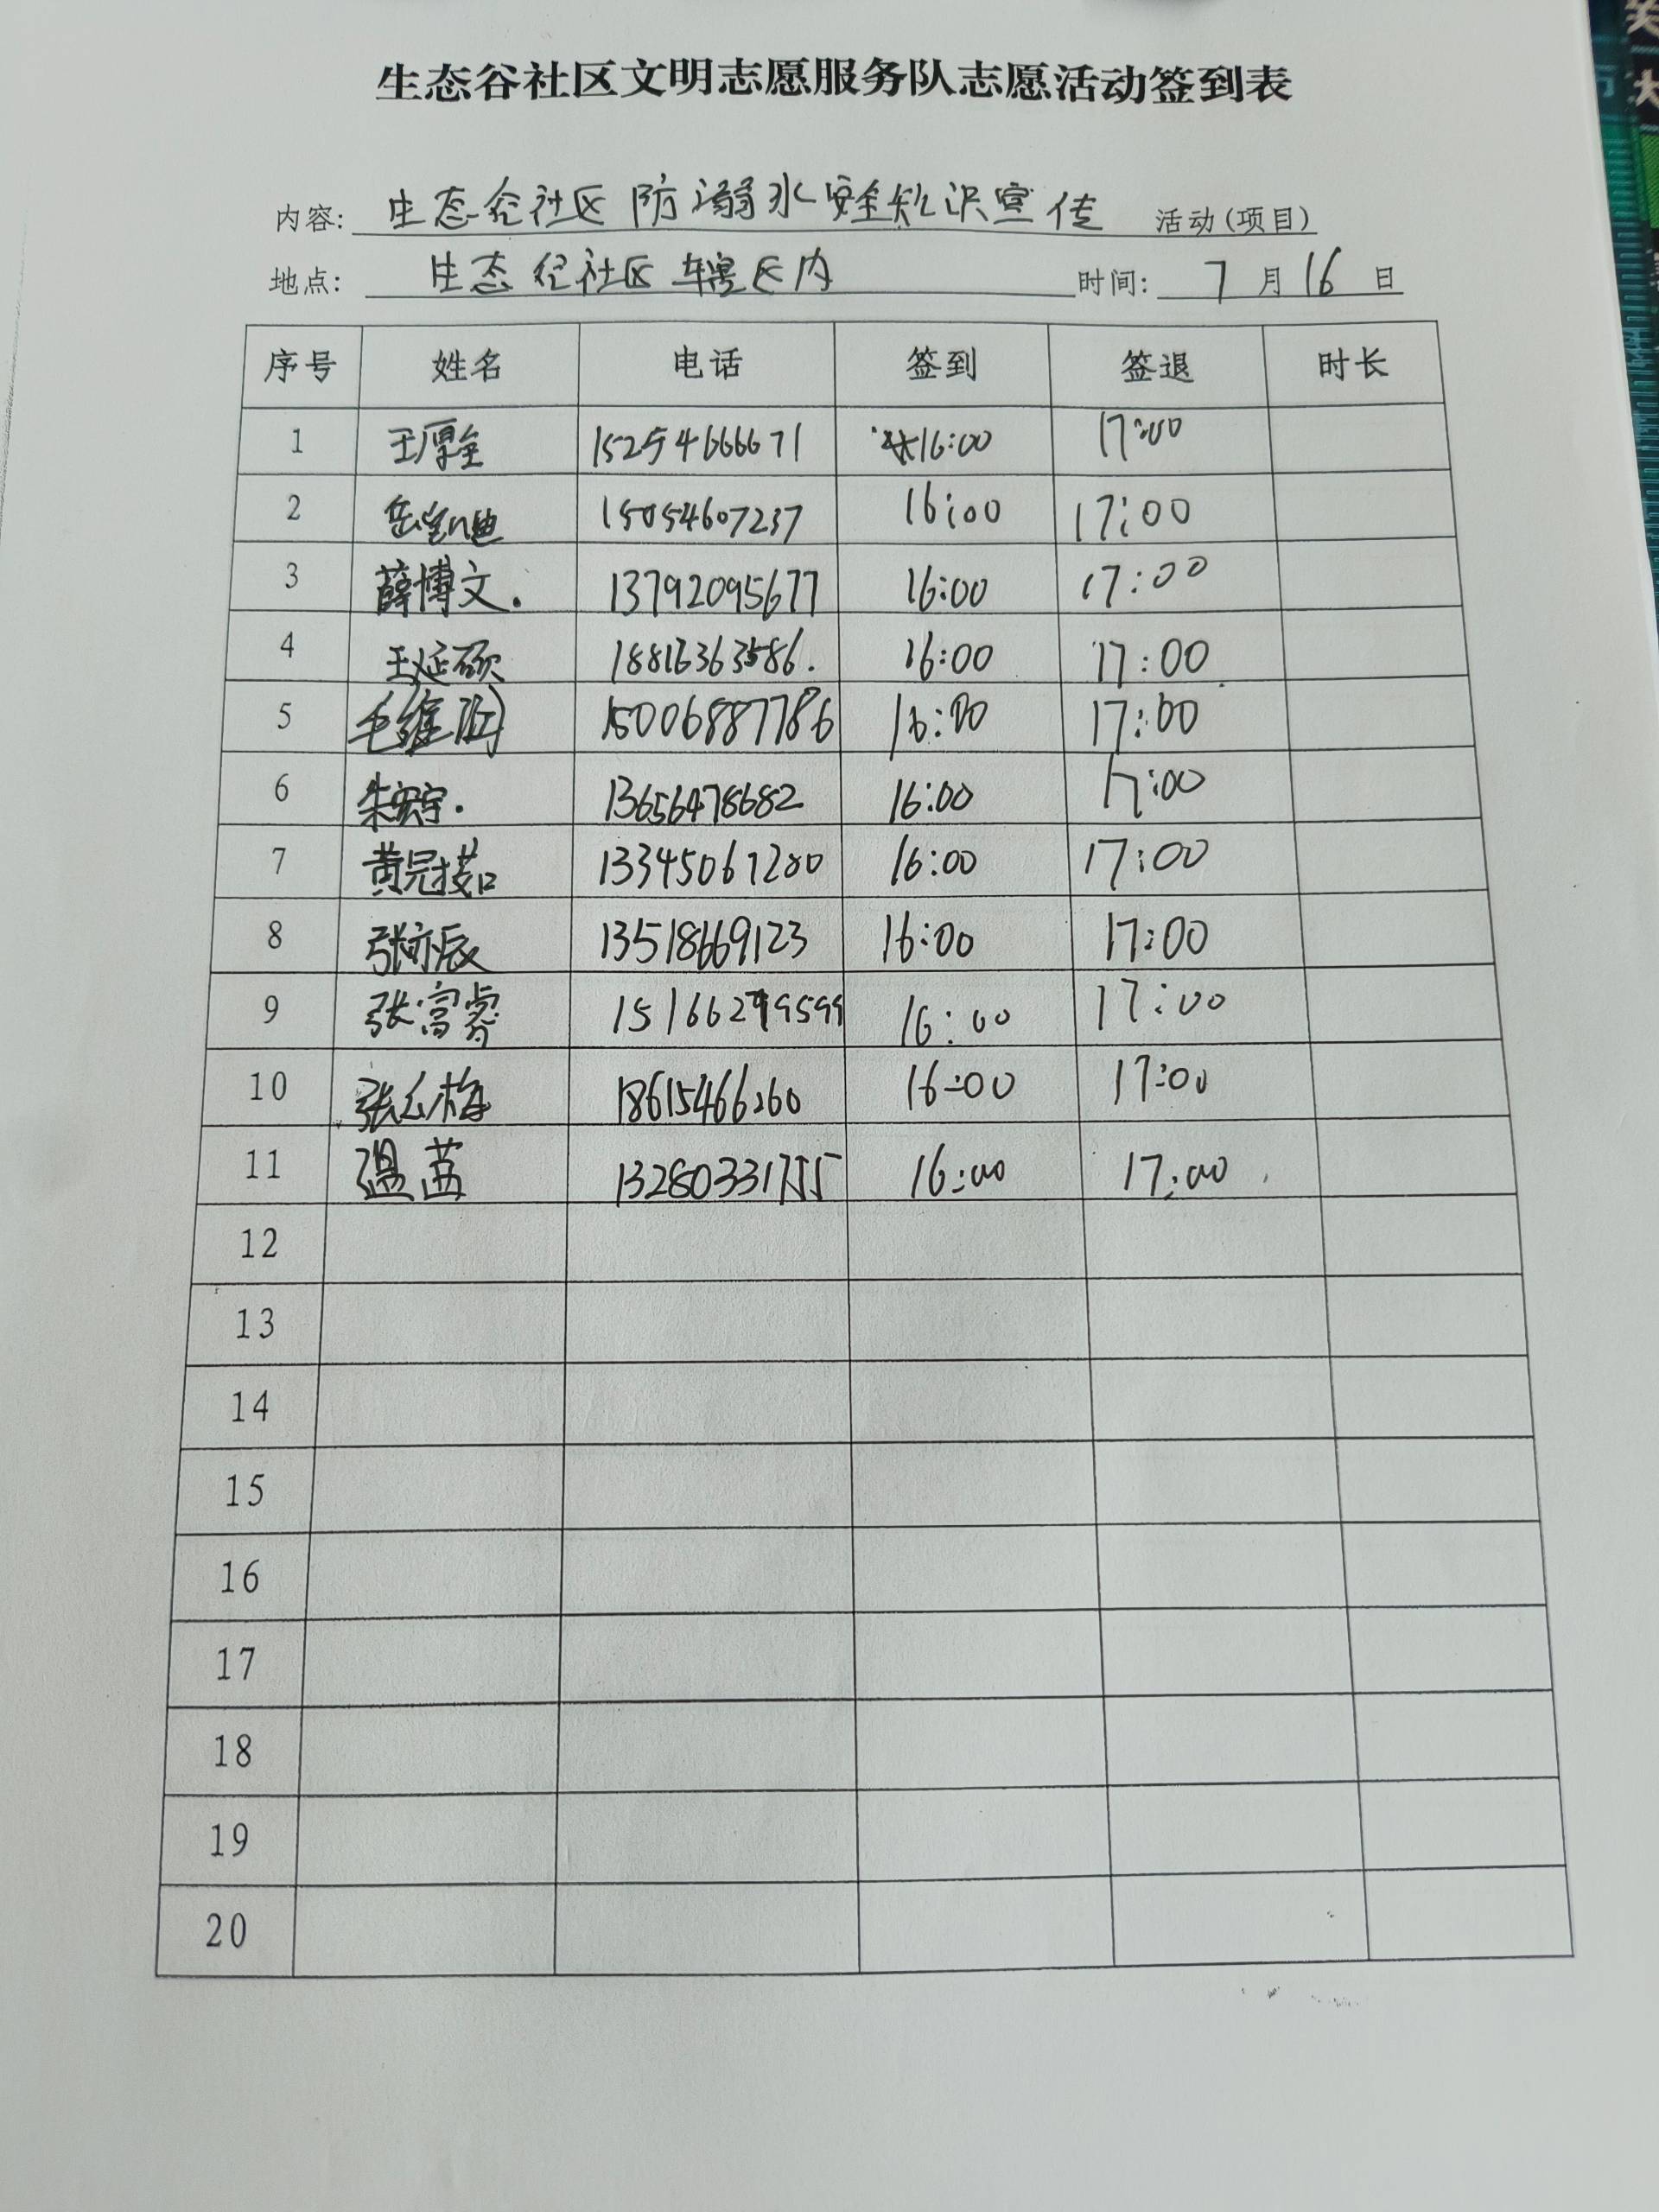 生态谷社区文明志愿服务队志愿活动签到表
内容: 生态谷社区防溺水安全知识宣传 活动(项目)
地点: 生态谷社区辖区内 时间: 7月16日
序号 姓名 电话 签到 签退 时长
1 王厚全 15254666671 16:00 17:00
2 岳凯迪 15054607237 16:00 17:00
3 薛博文. 13792095677 16:00 17:00
4 王延硕 18816363586. 16:00 17:00
5 毛维 15006887786 16:00 17:00
6 朱宏宇. 13656478682 16:00 17:00
7 黄冠 13345061280 16:00 17:00
8 张亦辰 13518669123 16:00 17:00
9 张富睿 16:00 17:00
10 张 梅 18615466260 16:00 17:00
11 温茜 13280331755 16:00 17:00
12
13
14
15
16
17
18
19
20